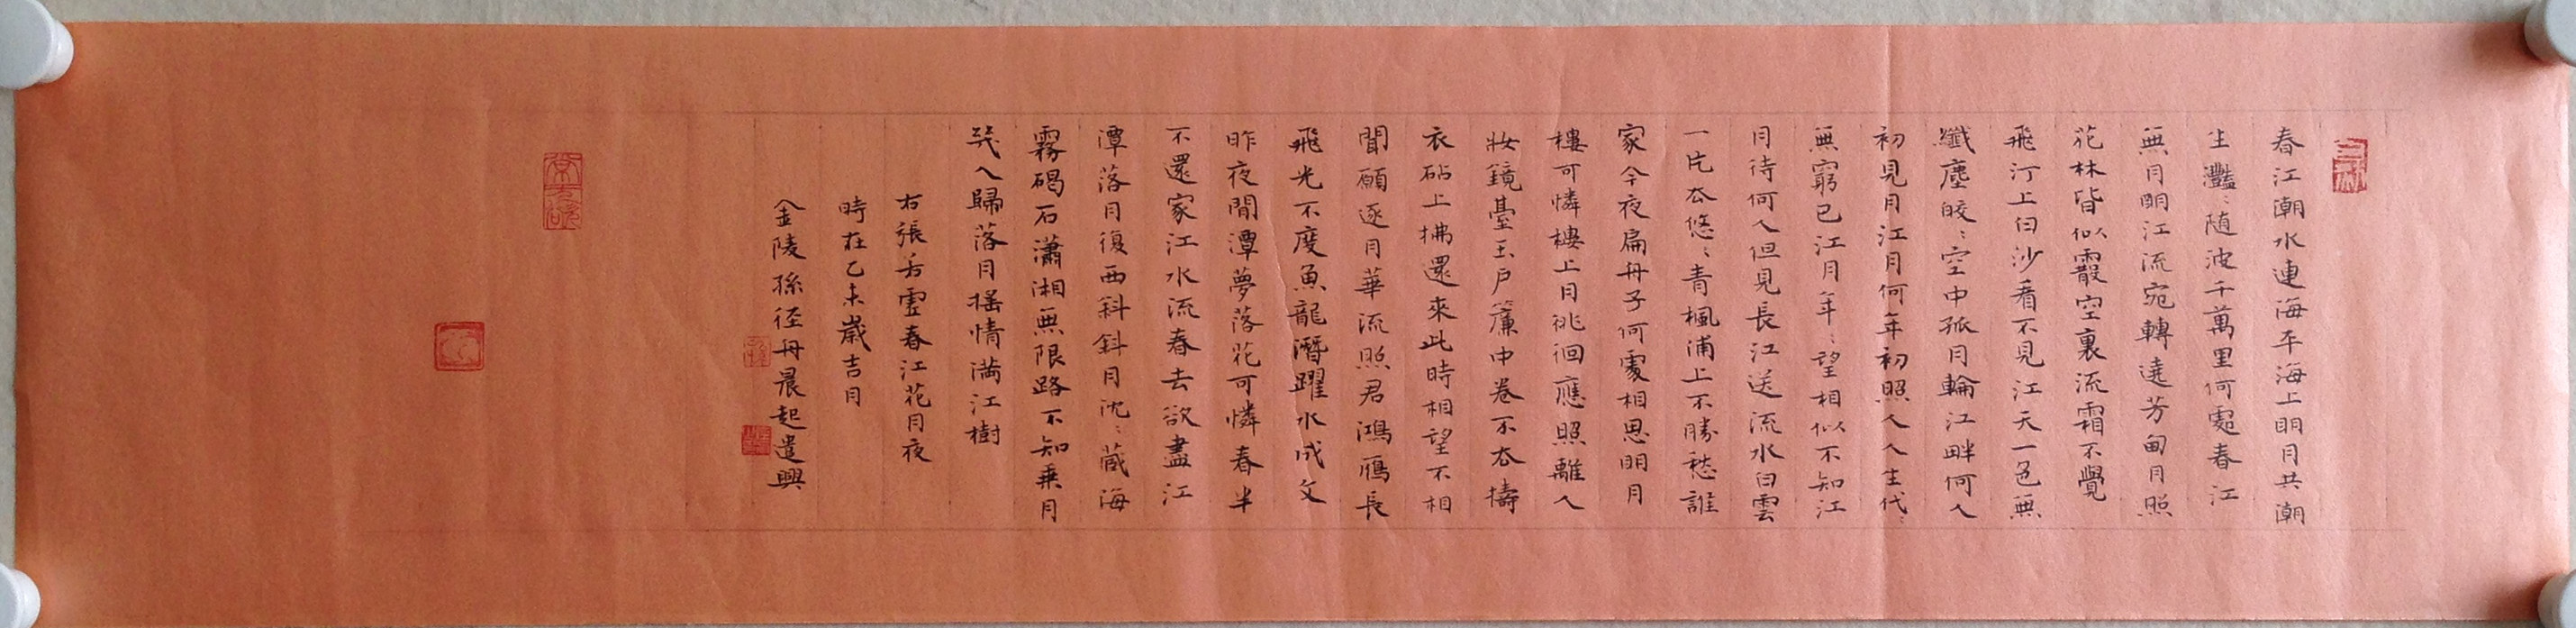 春江潮水連海平海上明月共潮
生灩〻随波千萬里何處春江
無月明江流宛轉遶芳甸月照
花林皆似霰空裏流霜不覺
飛汀上白沙看不見江天一色無
纖塵皎〻空中孤月輪江畔何人
初見月江月何年初照人人生代〻
無窮已江月年〻望相似不知江
月待何人但見長江送流水白雲
一片去悠〻青楓浦上不勝愁誰
家今夜扁舟子何處相思明月
樓可憐樓上月徘徊應照離人
妝鏡臺玉戶簾中卷不去擣
衣砧上拂還來此時相望不相
聞願逐月華流照君鴻雁長
飛光不度魚龍潛躍水成文
昨夜閒潭夢落花可憐春半
不還家江水流春去欲盡江
潭落月復西斜斜月沈〻藏海
霧碣石瀟湘無限路不知乗月
幾人歸落月揺情満江樹
右張若虛春江花月夜
時在乙未歲吉月
金陵孫徑舟晨起遣興